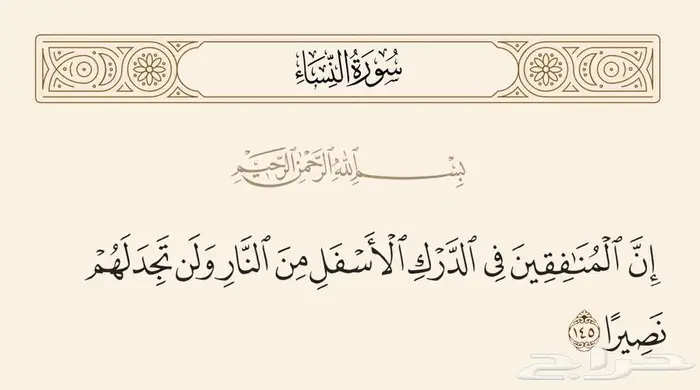 سُورَةُ النِّسَاءِ
بِسْمِ ٱللَّهِ ٱلرَّحْمَٰنِ ٱلرَّحِيمِ
إِنَّ ٱلْمُنَٰفِقِينَ فِى ٱلدَّرْكِ ٱلْأَسْفَلِ مِنَ ٱلنَّارِ وَلَن تَجِدَ لَهُمْ
نَصِيرًا ١٤٥
حراج